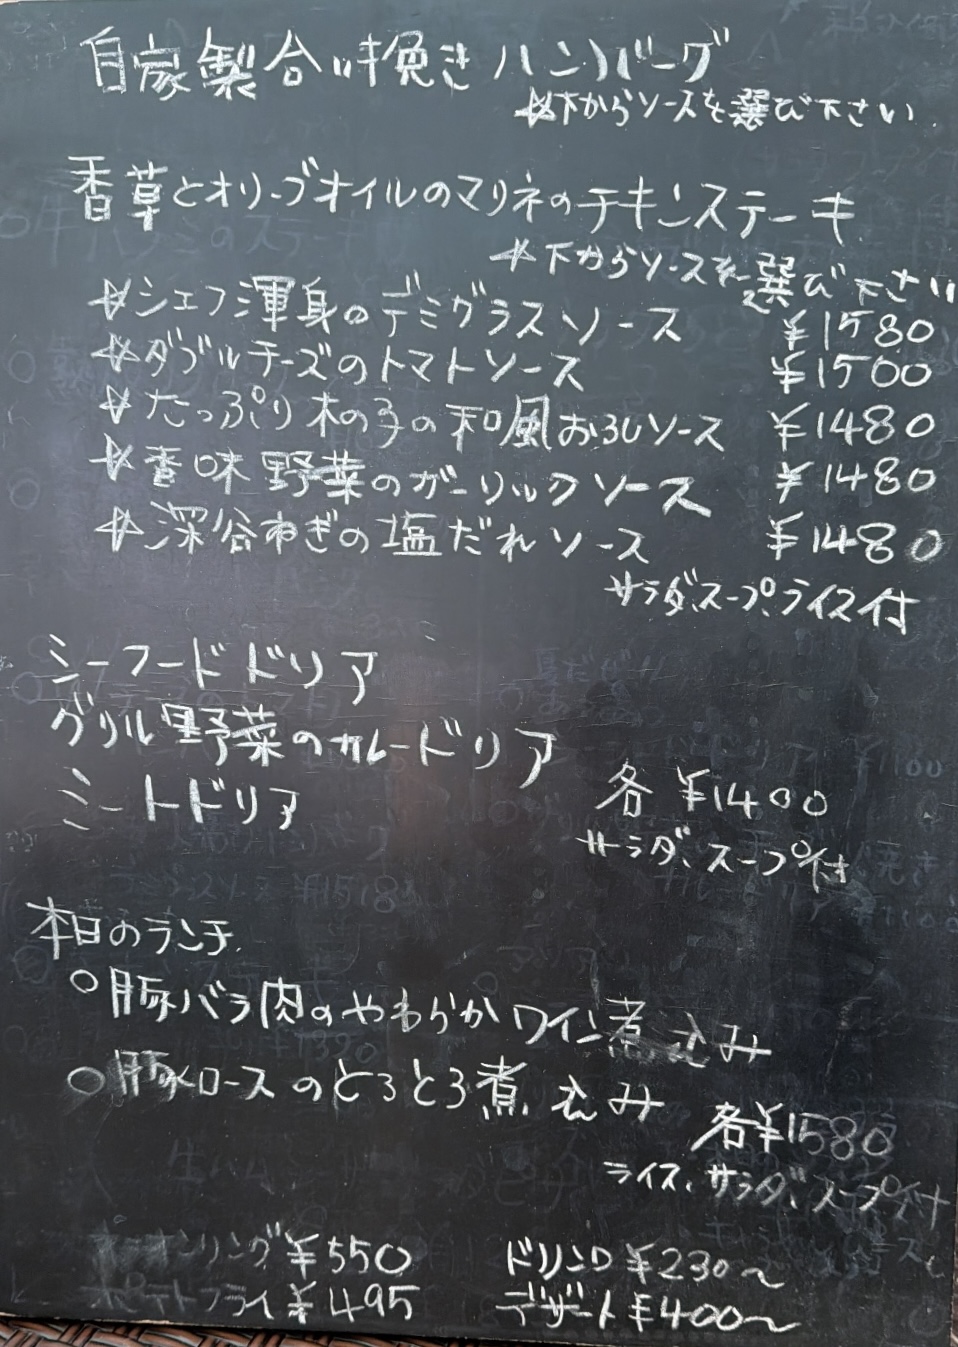 自家製合い挽きハンバーグ
☆下からソースを選び下さい
香草とオリーブオイルのマリネのチキンステーキ
☆下からソースを選び下さい
☆シェフ渾身のデミグラスソース ¥1580
☆ダブルチーズのトマトソース ¥1500
☆たっぷり木の子の和風おろしソース ¥1480
☆香味野菜のガーリックソース ¥1480
☆深谷ねぎの塩だれソース ¥1480
サラダ、スープ、ライス付
シーフードドリア
グリル野菜のカレードリア
ミートドリア
各 ¥1400
サラダ、スープ付
本日のランチ
○豚バラ肉のやわらかワイン煮込み
○豚ロースのとろとろ煮込み
各¥1580
ライス、サラダ、スープ付
オニオンリング ¥550 ドリンク ¥230〜
ポテトフライ ¥495 デザート ¥400〜